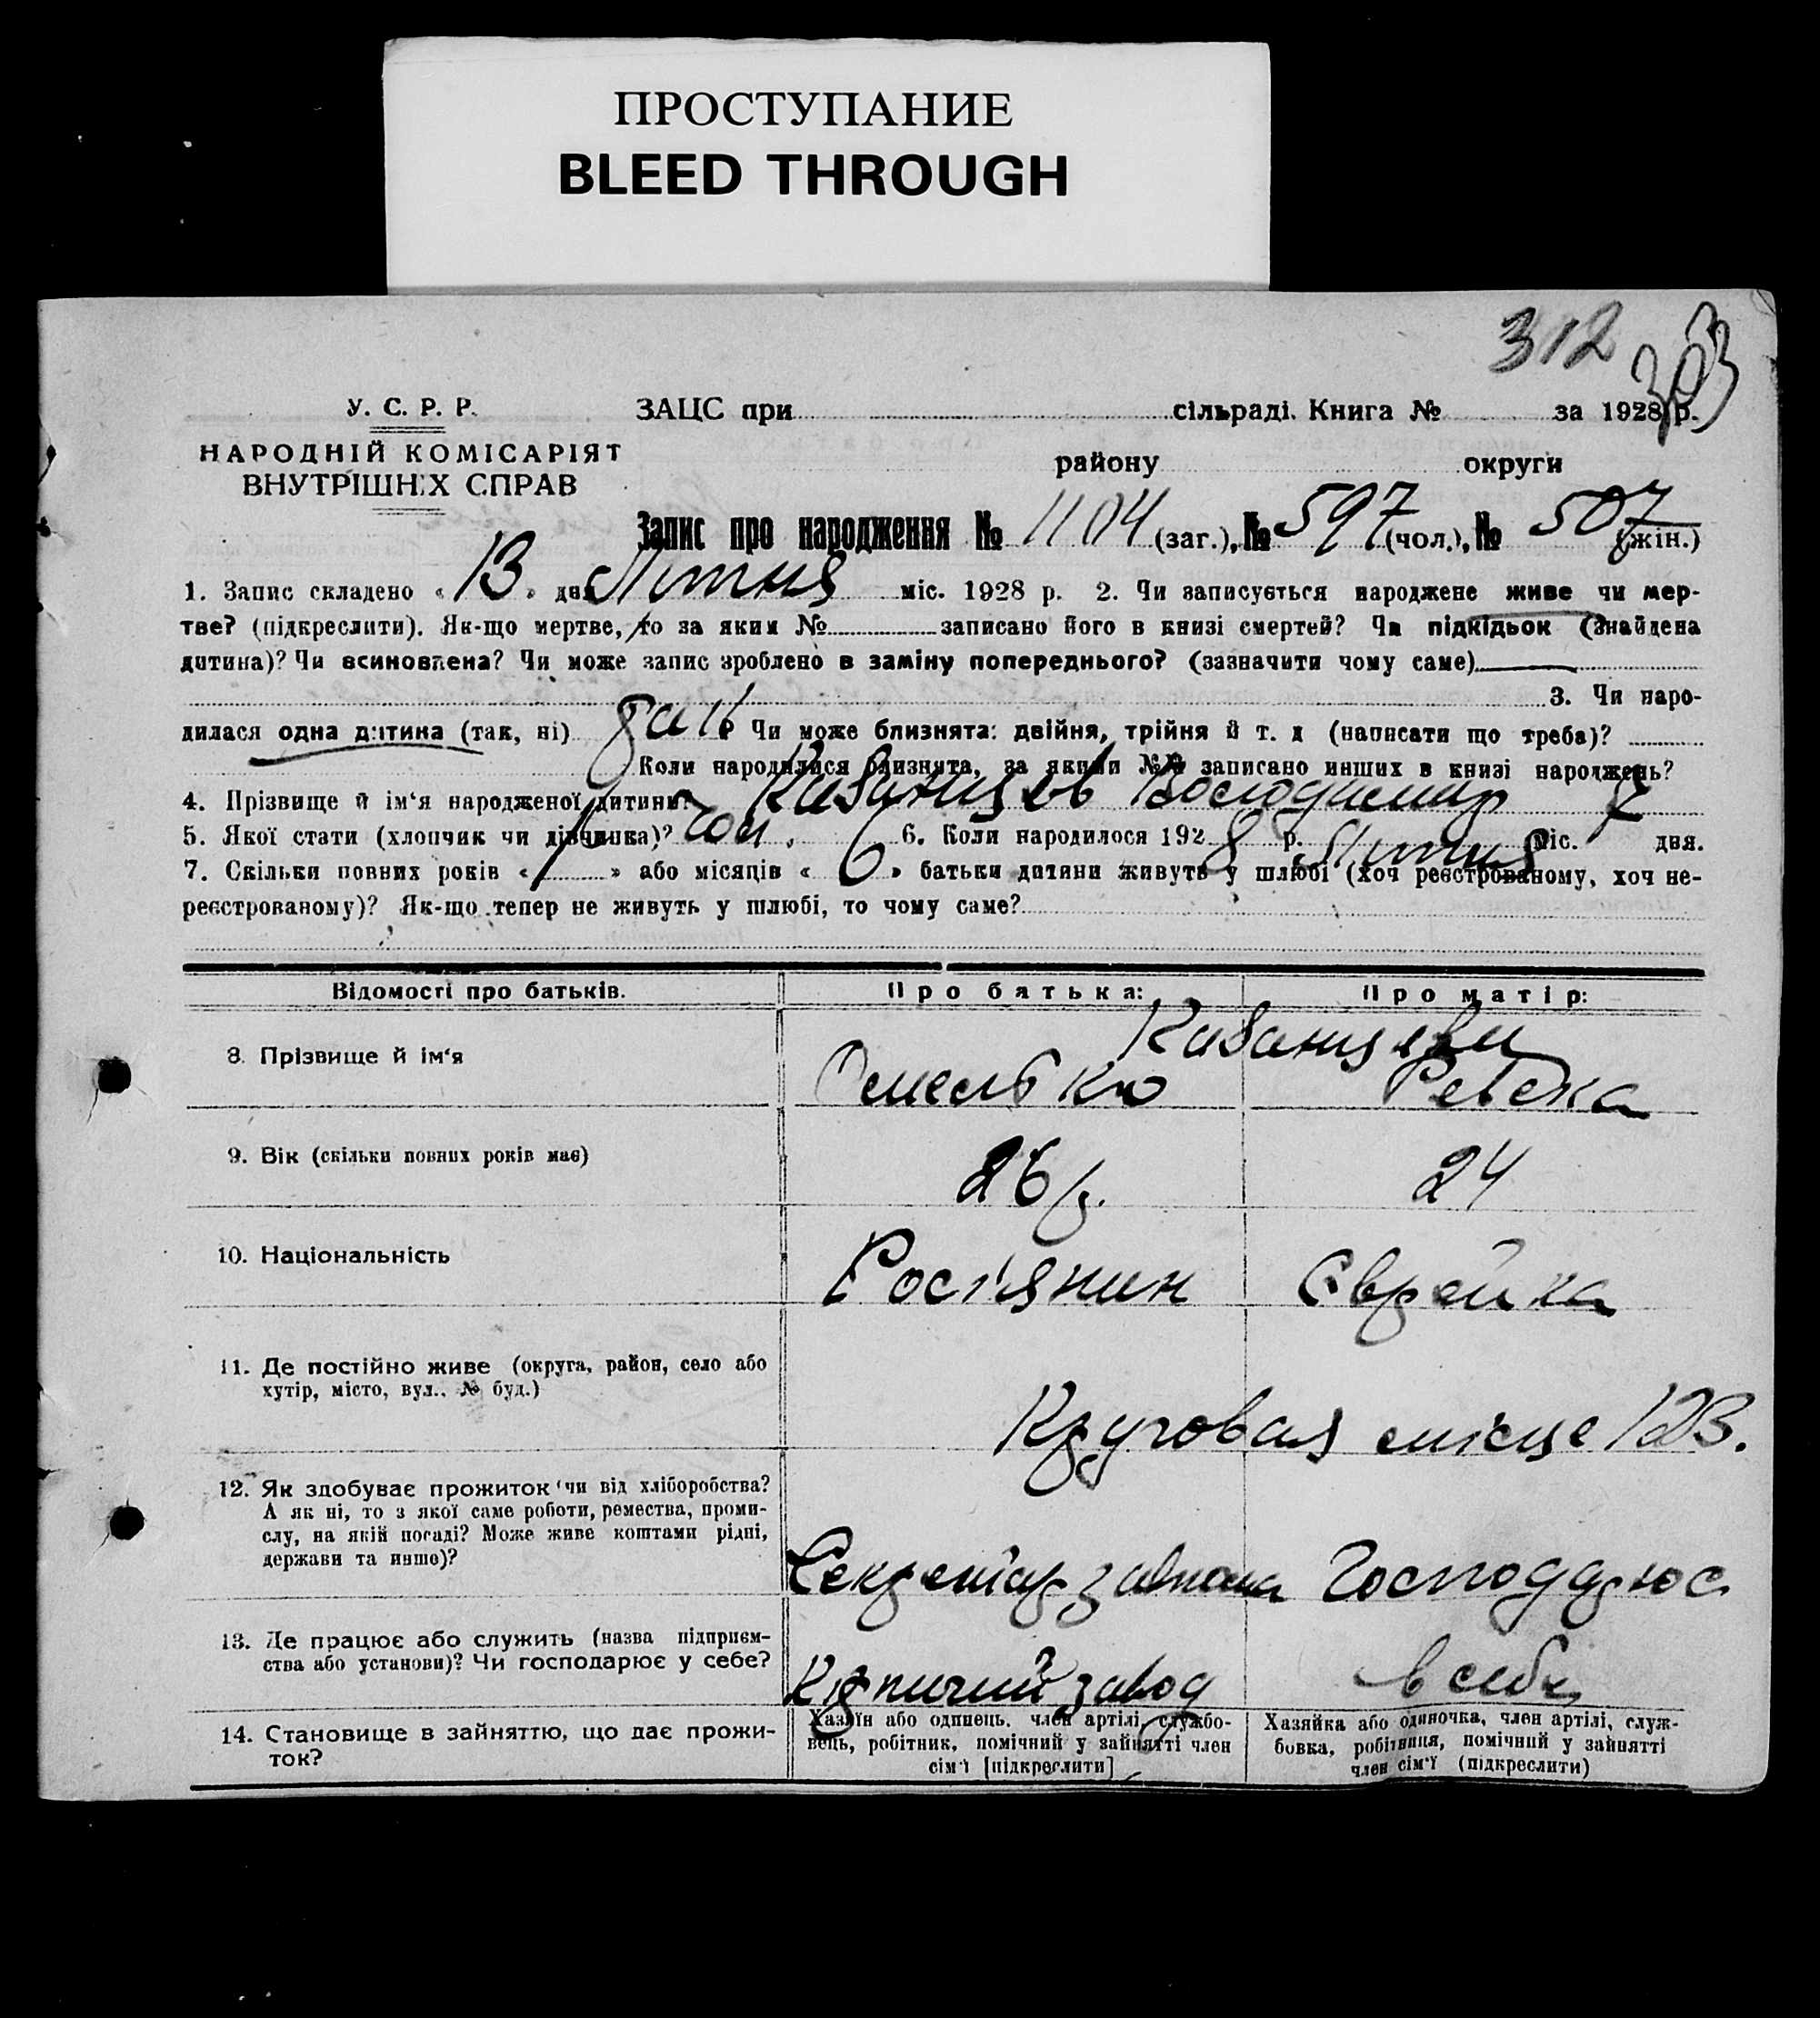 ПРОСТУПАНИЕ
BLEED THROUGH
312 303
У. С. Р. Р.
НАРОДНІЙ КОМІСАРІЯТ
ВНУТРІШНІХ СПРАВ
ЗАЦС при сільраді. Книга № за 1928 р.
району округи
Запис про народження № 1104 (заг.), № 597 (чол.), № 507 (жін.)
1. Запис складено « 13 » дня Липня міс. 1928 р. 2. Чи записується народжене живе чи мер-
тве? (підкреслити). Як-що мертве, то за яким № записано його в книзі смертей? Чи підкідьок (знайдена
дитина)? Чи всиновлена? Чи може запис зроблено в заміну попереднього? (зазначити чому саме)
3. Чи наро-
дилася одна дитина (так, ні) так ? Чи може близнята: двійня, трійня й т. д (написати що треба)?
Коли народилися близнята, за якими №№ записано инших в книзі народжень?
4. Прізвище й ім'я народженої дитини? Казанцев Володимир
5. Якої стати (хлопчик чи дівчинка)? чол. 6. Коли народилося 1928 р. Липня міс. 7 дня.
7. Скільки повних років « 1 » або місяців « 6 » батьки дитини живуть у шлюбі (хоч реєстрованому, хоч не-
реєстрованому)? Як-що тепер не живуть у шлюбі, то чому саме?
Відомості про батьків. Про батька: Про матір:
Казанцеви
8. Прізвище й ім'я Омелько Ревека
9. Вік (скільки повних років має) 26 р. 24
10. Національність Росіянин Єврейка
11. Де постійно живе (округа, район, село або
хутір, місто, вул., № буд.)
Круговая 123.
12. Як здобуває прожиток чи від хліборобства?
А як ні, то з якої саме роботи, ремества, проми-
слу, на якій посаді? Може живе коштами рідні,
держави та инше)?
Секретар завкома Господарює
13. Де працює або служить (назва підприєм-
ства або установи)? Чи господарює у себе?
Кірпичний завод в себе
14. Становище в зайняттю, що дає прожи-
ток?
Хазяїн або одинець, член артілі, службо-
вець, робітник, помічний у зайнятті член
сім'ї [підкреслити]
Хазяйка або одиночка, член артілі, служ-
бовка, робітниця, помічний у зайнятті
член сім'ї (підкреслити)